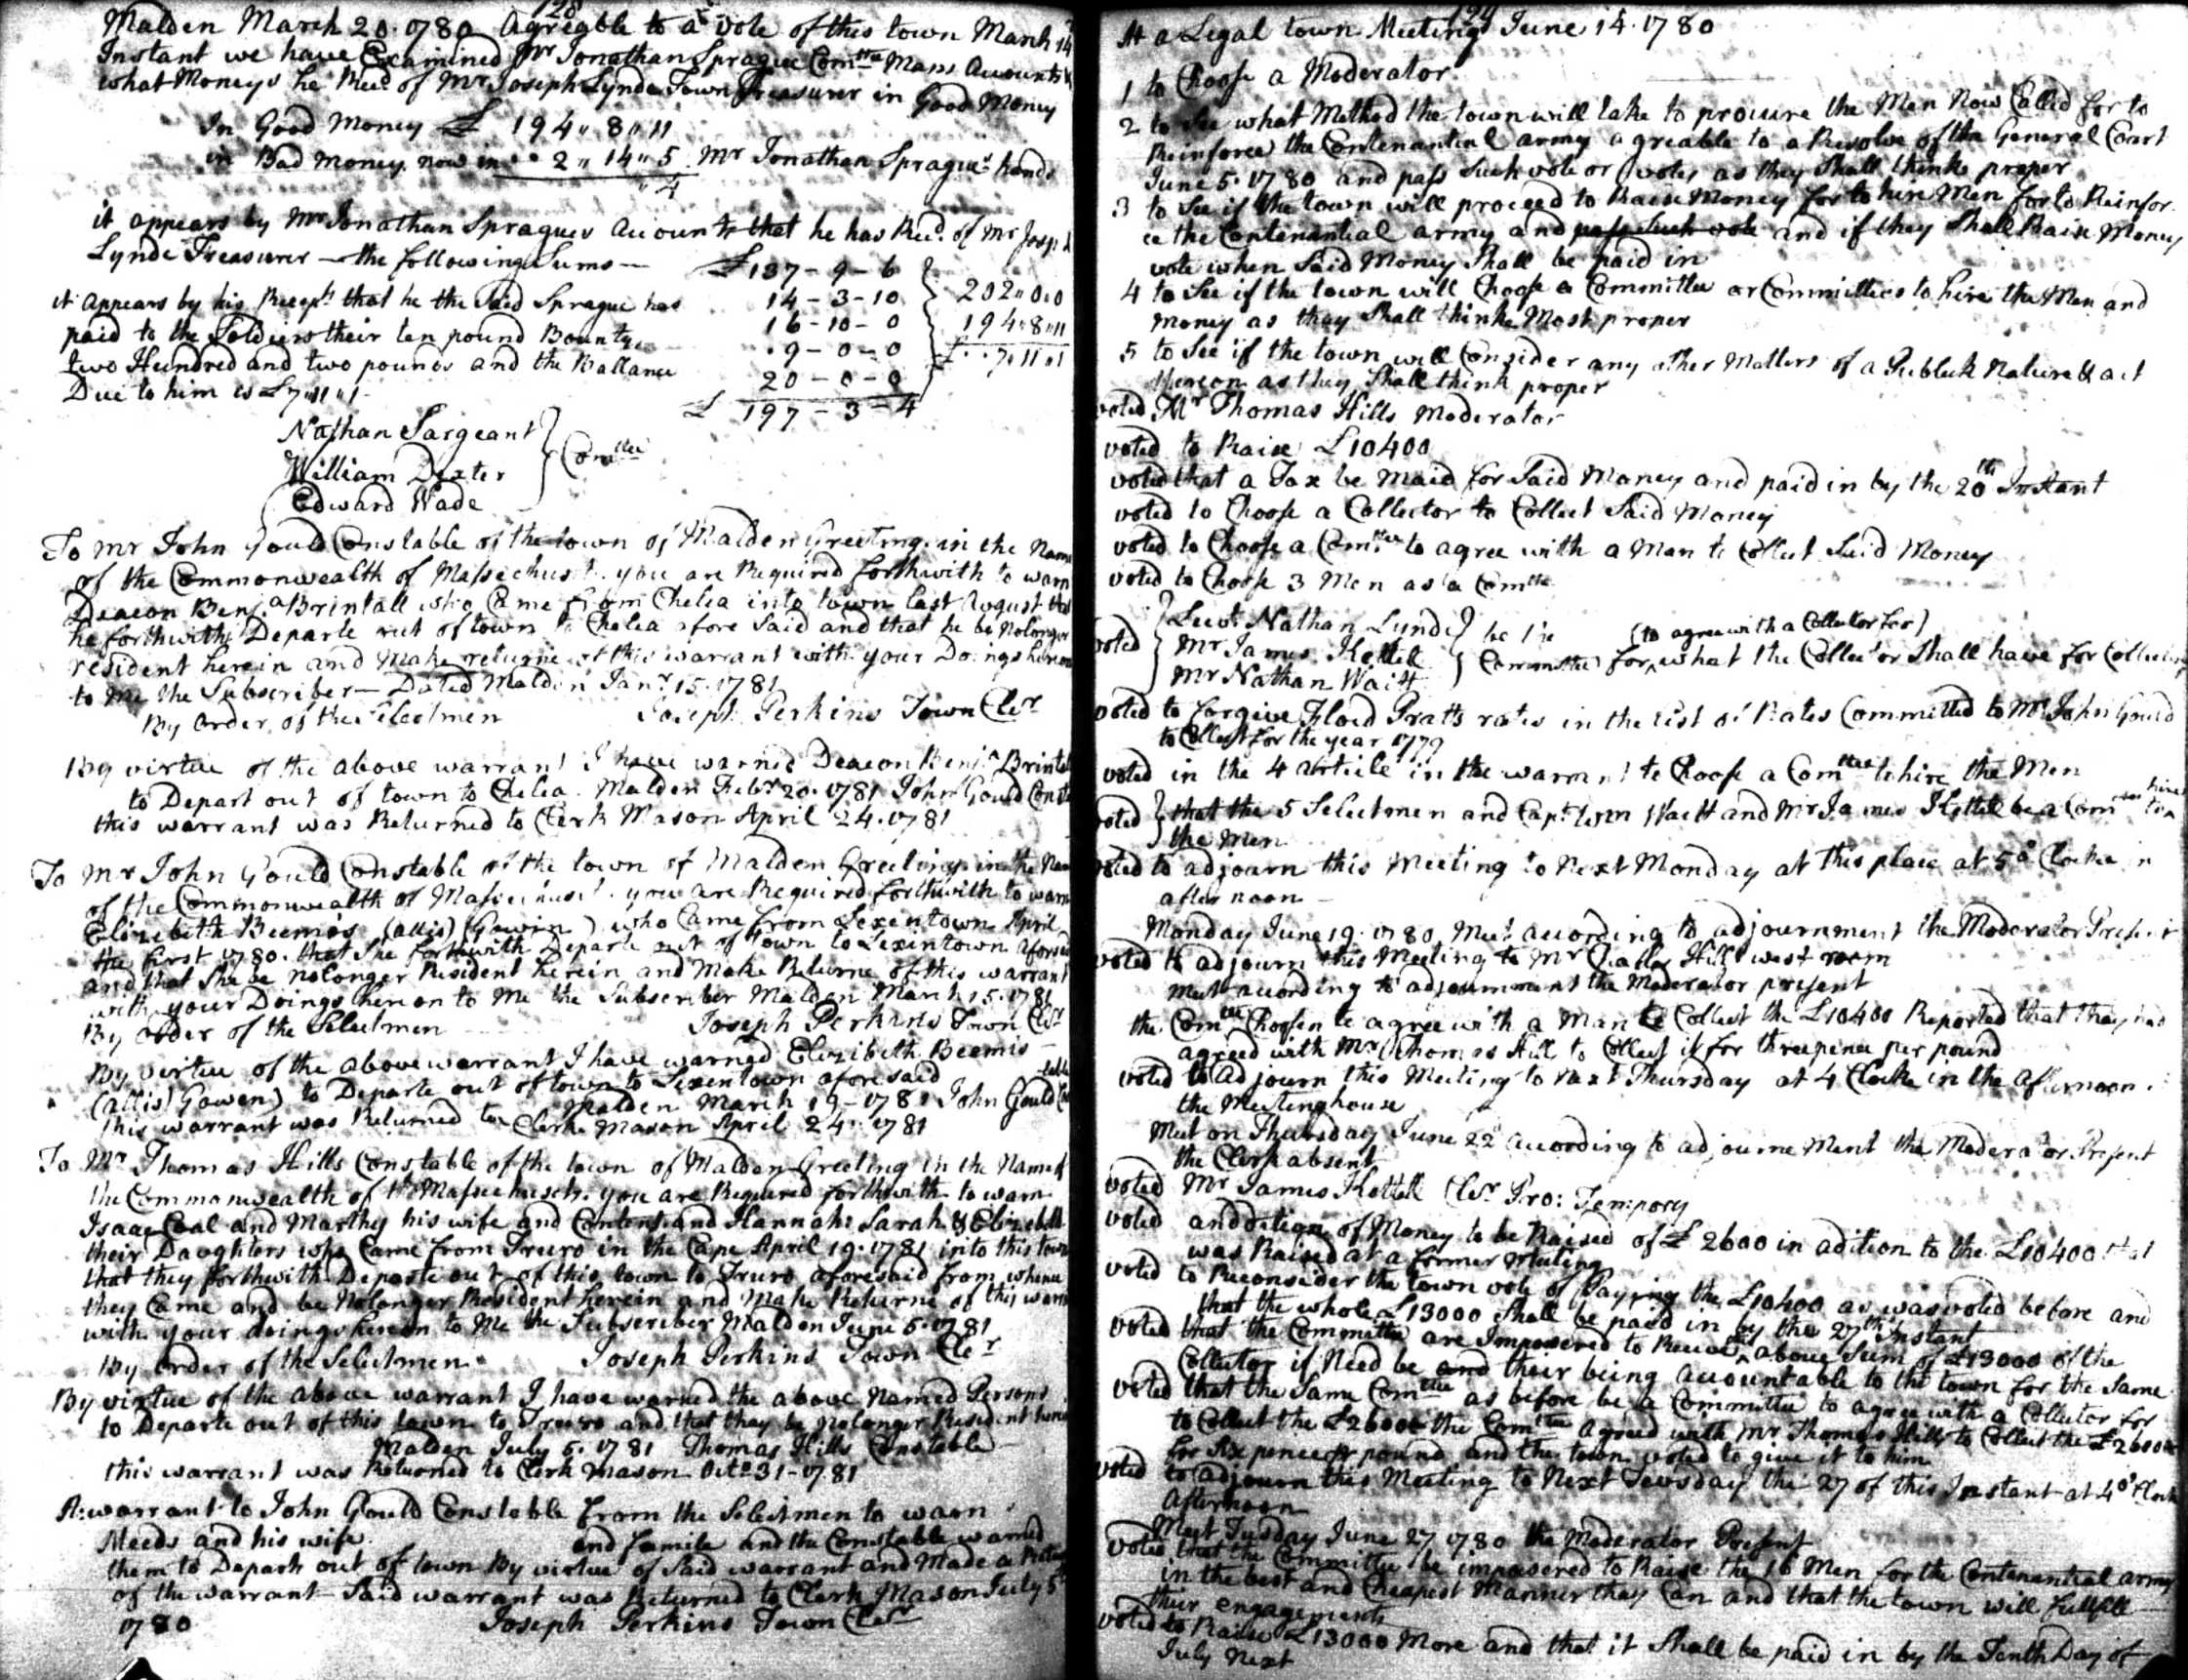 128
Malden March 20. 1780 Agreable to a vote of this town March 14
Instant we have Examined Mr Jonathan Sprague Comtte Mans Acounts &
what Moneys he Recd of Mr Joseph Lynde Town Treasurer in Good Money
In Good Money £ 194 " 8 " 11
in Bad Money now in 2 " 14 " 5 Mr Jonathan Sprague's hands
" 4
it appears by Mr Jonathan Spragues Acounts that he has Recd of Mr Joseph
Lynde Treasurer — the following Sums —
£ 137 - 9 - 6
14 - 3 - 10
16 - 10 - 0
9 - 0 - 0
20 - 0 - 0
£ 197 - 3 - 4
202 " 0 " 0
194 " 8 " 11
£ 7 " 11 " 1
it Appears by his Recept that he the said Sprague has
paid to the Soldiers their ten pound Bounty
two Hundred and two pounds and the Ballance
Due to him is £ 7 " 11 " 1
Nathan Sargeant
William Dexter
Edward Wade
Comttee
To Mr John Gould Constable of the town of Malden Greeting in the Name
of the Commonwealth of Massechusets you are Required forthwith to warn
Deacon Benja Brintall who Came from Chelsa into town last August that
he forthwith Departe out of town to Chelsa afore said and that he be nolonger
resident herein and Make returne of this warrant with your Doings hereon
to Me the Subscriber — Dated Maldin Janr 15. 1781
By order of the Selectmen Joseph Perkins Town Cler
By virtue of the above warrant I have warned Deacon Benja Brintal
to Depart out of town to Chelsa. Malden Febr 20. 1781 John Gould Const
this warrant was Returned to Clerk Mason April 24. 1781
To Mr John Gould Constable of the town of Malden Greeting in the Name
of the Commonwealth of Massechuset you are Required forthwith to warn
Elizebeth Beemis (allis) (Gowin) who Came from Lexentown April
the first 1780. that She forthwith Departe out of town to Lexintown aforesd
and that She be nolonger Resident herein and Make Returne of this warrant
with your Doings hereon to Me the Subscriber Malden March 15. 1781
By order of the Selectmen Joseph Perkins Town Cler
By virtue of the above warrant I have warned Elizibeth Beemis
(allis) Gowen) to Departe out of town to Lexentown afore said
Malden March 19 - 1781 John Gould Constable
this warrant was Returned to Clerk Mason April 24. 1781
To Mr Thomas Hills Constable of the town of Malden Greeting in the Name of
the Commonwealth of Massechusets you are Required forthwith to warn
Isaac Coal and Marthy his wife and Content and Hannah: Sarah & Elizebeth
their Daughters who Came from Truro in the Cape April 19. 1781 into this town
that they forthwith Departe out of this town to Truro aforesaid from whence
they Came and be Nolonger Resident herein and Make Returne of this warrant
with your doings hereon to Me the Subscriber Malden June 5. 1781
By order of the Selectmen Joseph Perkins Town Cler
By virtue of the above warrant I have warned the above Named Persons
to Departe out of this town to Truro and that they be Nolonger Resident herein
Malden July 5. 1781 Thomas Hills Constable
this warrant was Returned to Clerk Mason Octr 31 - 1781
A warrant to John Gould Constable from the Selectmen to warn
Meeds and his wife and famile and the Constable warned
them to Depart out of town By virtue of Said warrant and Made a Return
of the warrant Said warrant was Returned to Clerk Mason July 5
1780 Joseph Perkins Town Cler
129
At a Legal town Meeting June 14. 1780
1 to Choose a Moderator
2 to See what Method the town will take to procure the Men Now Called for to
Reinforce the Contenantial army agreable to a Resolve of the General Court
June 5. 1780 and pass Such vote or votes as they Shall think proper
3 to See if the town will proceed to Raise Money for to hire Men for to Reinfor
ce the Contenantial army and pass Such vote and if they Shall Raise Money
vote when Said Money Shall be paid in
4 to See if the town will Choose a Committee or Committees to hire the Men and
Money as they Shall think Most proper
5 to See if the town will Consider any other Matters of a Publick Nature & act
thereon as they Shall think proper
voted Mr Thomas Hills Moderator
voted to Raise £10400
voted that a Tax be Maid for Said Money and paid in by the 20th Instant
voted to Choose a Collector to Collect Said Money
voted to Choose a Comttee to agree with a Man to Collect Said Money
voted to Choose 3 Men as a Comtte
voted Leut Nathan Lynde
Mr James Kettell
Mr Nathan Waitt
be the Committee for (to agree with a Collector for) what the Collector Shall have for Collecting
voted to forgive Floid Pratts rates in the List of Rates Committed to Mr John Gould
to Collect for the year 1779
voted in the 4 article in the warrant to Choose a Comttee to hire the Men
voted that the 5 Selectmen and Capt John Waitt and Mr James Kettell be a Comttee to hire
the Men
voted to adjourn this Meeting to Next Monday at this place at 5 o Clocke in
after noon —
Monday June 19. 1780 Meet according to adjournment the Moderator Present
voted to adjourn this Meeting to Mr Charles Hills west room
Meet according to adjournment the Moderator present
the Comttee Choosen to agree with a Man to Collect the £10400 Reported that they had
agreed with Mr Thomas Hill to Collect it for threepence per pound
voted to adjourn this Meeting to next Thursday at 4 Clocke in the afternoon
the Meetinghouse
Meet on Thursday June 22 according to adjournement the Moderator Present
the Clerk absent
voted Mr James Kettell Cler Pro: Tempory
voted an addition of Money to be Raised of £ 2600 in adition to the £10400 that
was Raised at a former Meeting
voted to Reconsider the town vote of Paying the £10400 as was voted before and
that the whole £13000 Shall be paid in by the 27th Instant
voted that the Committee are Impowered to Receive the above Sum of £13000 of the
Collector if Need be and their being accountable to the town for the Same
voted that the Same Comttee as before be a Committee to agree with a Collector for
to Collect the £2600 the Comttee agreed with Mr Thomas Hills to Collect the £2600
for Six pence pr pound and the town voted to give it to him
voted to adjourn this Meeting to Next Tuesday the 27 of this Instant at 4 o'Clock
Afternoon
Meet Tusday June 27 1780 the Moderator Present
voted that the Committee be impowered to Raise the 16 Men for the Contenantial army
in the best and Cheapest Manner they Can and that the town will fullfill
their engagements
voted to Raise £13000 More and that it Shall be paid in by the Tenth Day of
July Next